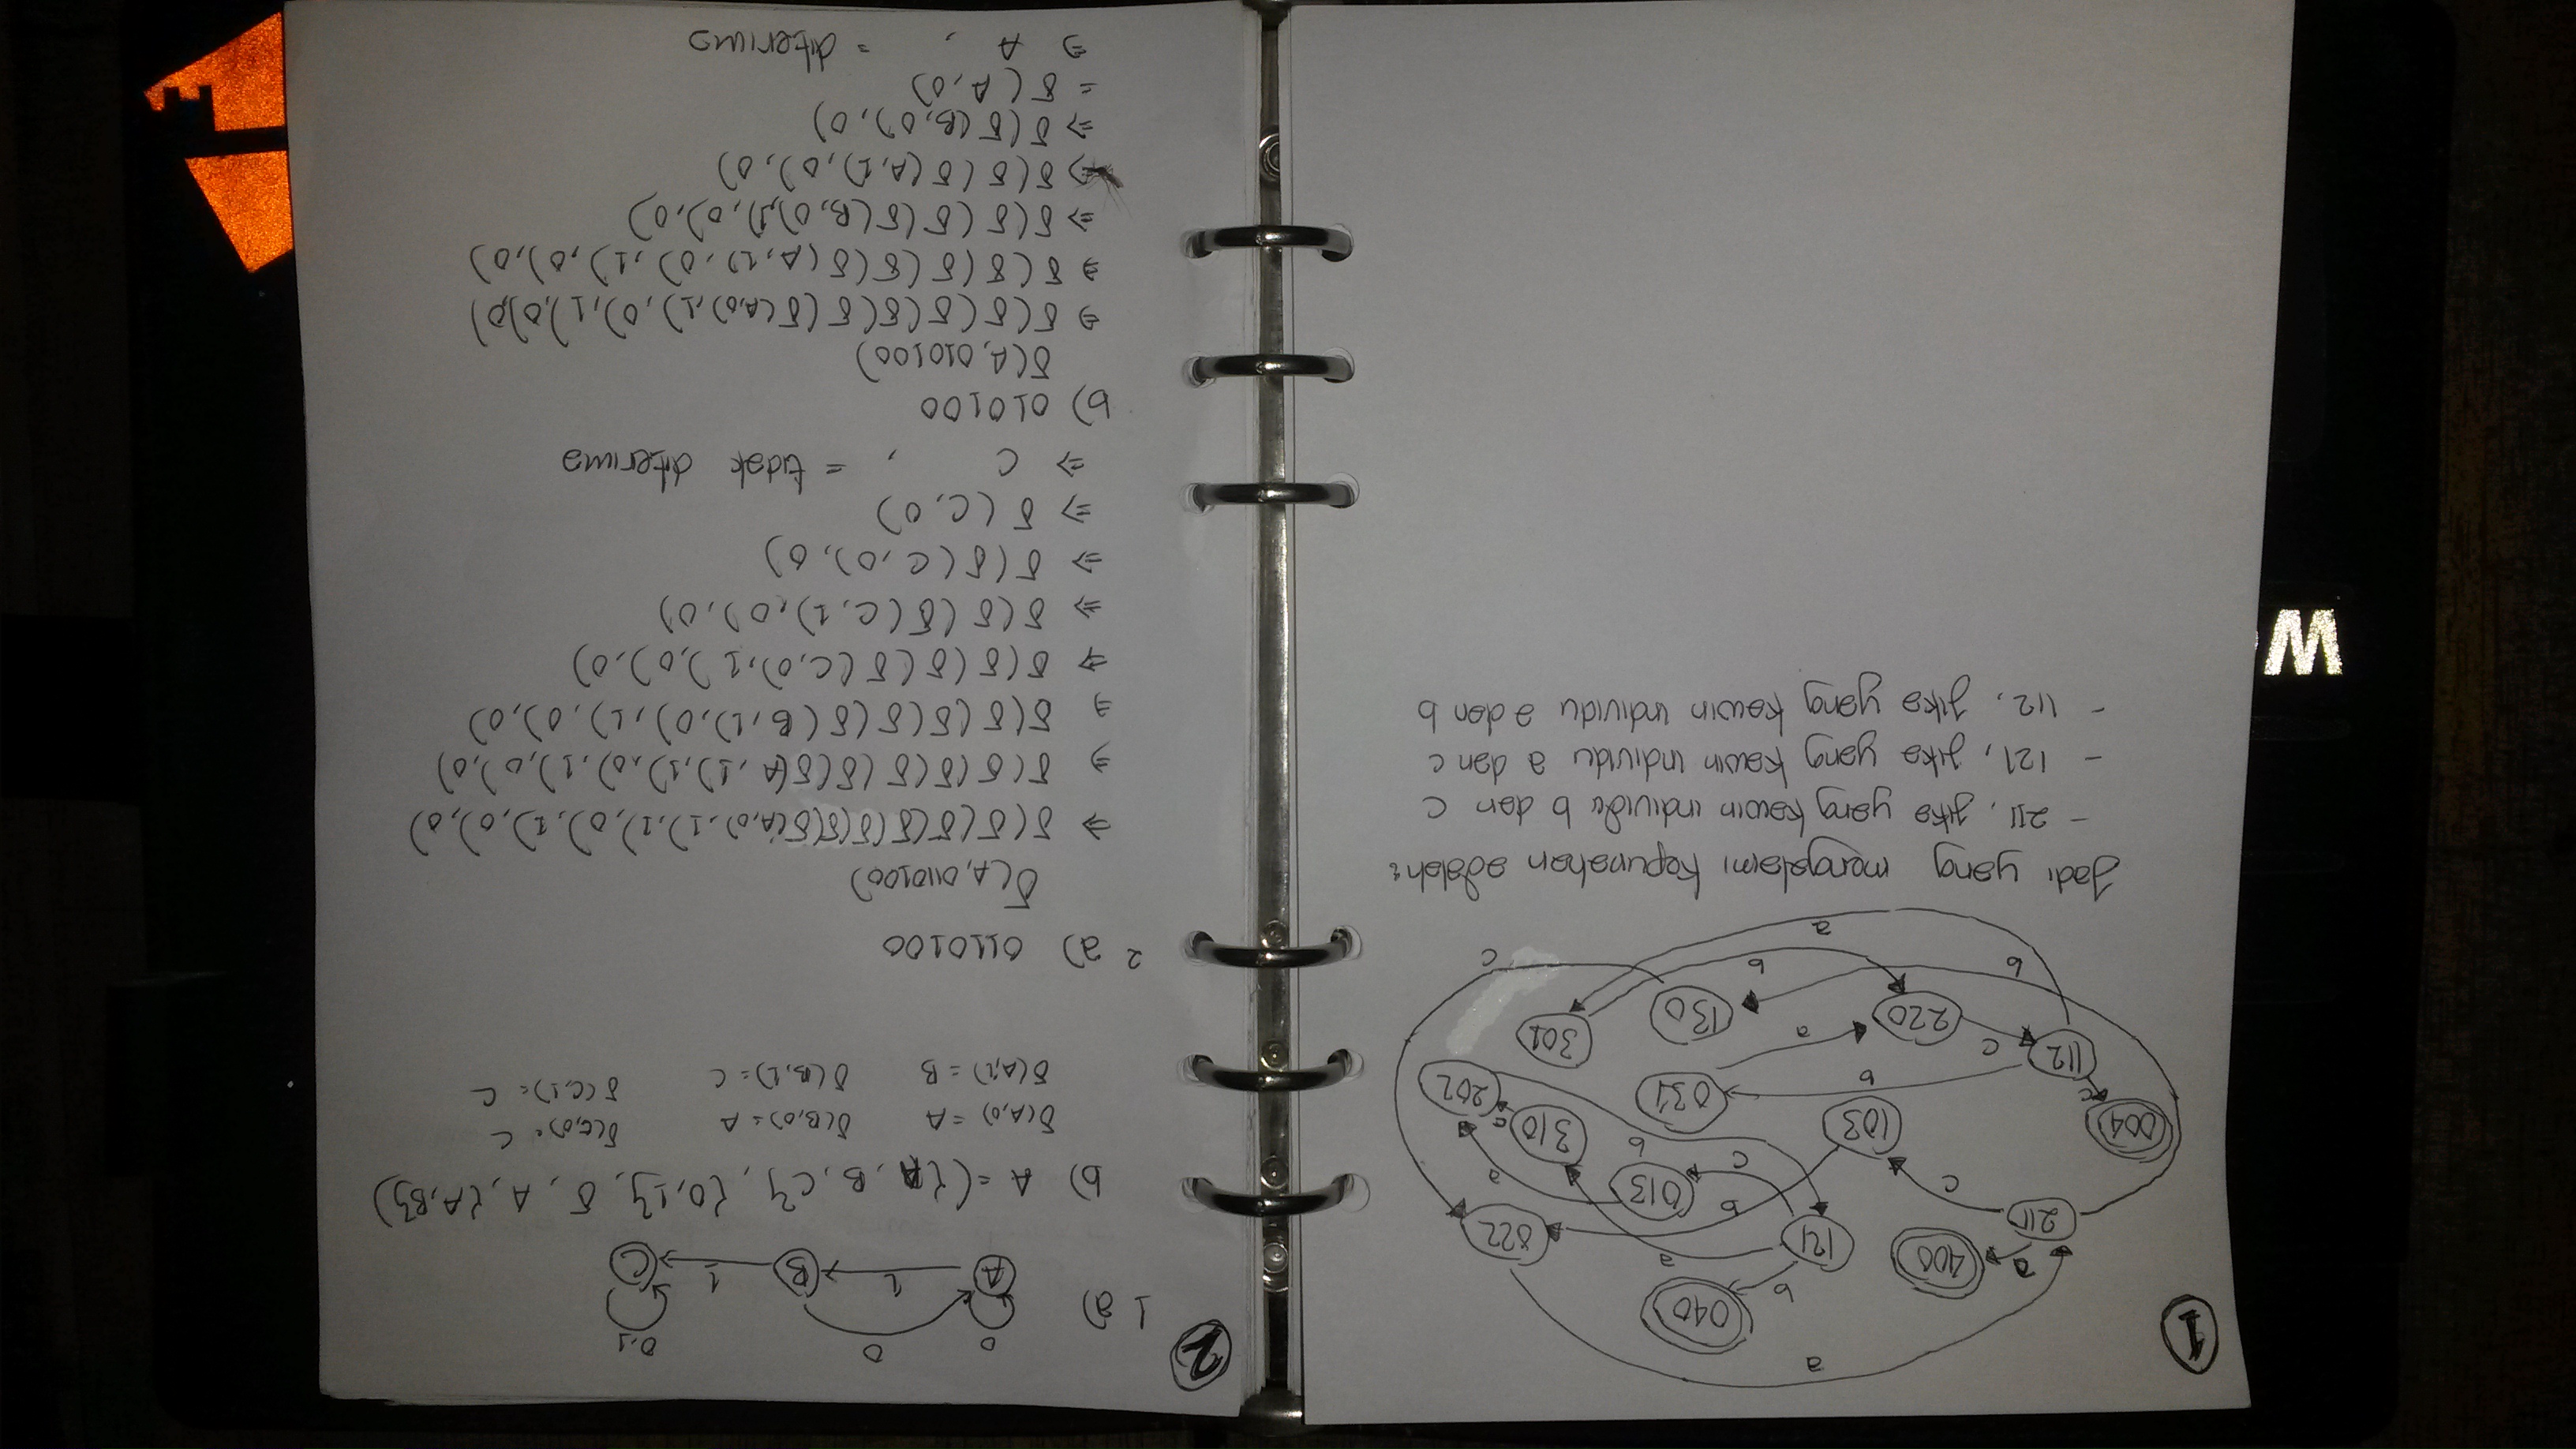 1
a
040
400
b
a
211
121
a
022
b
013
a
c
c
103
b
310
c
202
004
c
112
b
031
c
a
220
130
301
b
b
c
a
Jadi yang mengalami kepunahan adalah:
- 211, jika yang kawin individu b dan c
- 121, jika yang kawin individu a dan c
- 112, jika yang kawin individu a dan b
2
1 a)
0
0
0,1
A
1
B
1
C
b) A = ({A, B, C}, {0,1}, δ, A, {A,B})
δ(A,0) = A δ(B,0) = A δ(C,0) = C
δ(A,1) = B δ(B,1) = C δ(C,1) = C
2 a) 0110100
δ(A, 0110100)
⇒ δ(δ(δ(δ(δ(δ(δ(δ(A,0),1),1),1),0),1),0),0)
⇒ δ(δ(δ(δ(δ(δ(δ(A,1),1),1),0),1),0),0)
⇒ δ(δ(δ(δ(δ(B,1),0),1),0),0)
⇒ δ(δ(δ(δ(C,0),1),0),0)
⇒ δ(δ(δ(C,1),0),0)
⇒ δ(δ(C,0),0)
⇒ δ(C,0)
⇒ C , = tidak diterima
b) 010100
δ(A, 010100)
⇒ δ(δ(δ(δ(δ(δ(A,0),1),0),1),0),0)
⇒ δ(δ(δ(δ(δ(A,1),0),1),0),0)
⇒ δ(δ(δ(δ(B,0),1),0),0)
⇒ δ(δ(δ(A,1),0),0)
⇒ δ(δ(B,0),0)
= δ(A,0)
⇒ A , = diterima
W